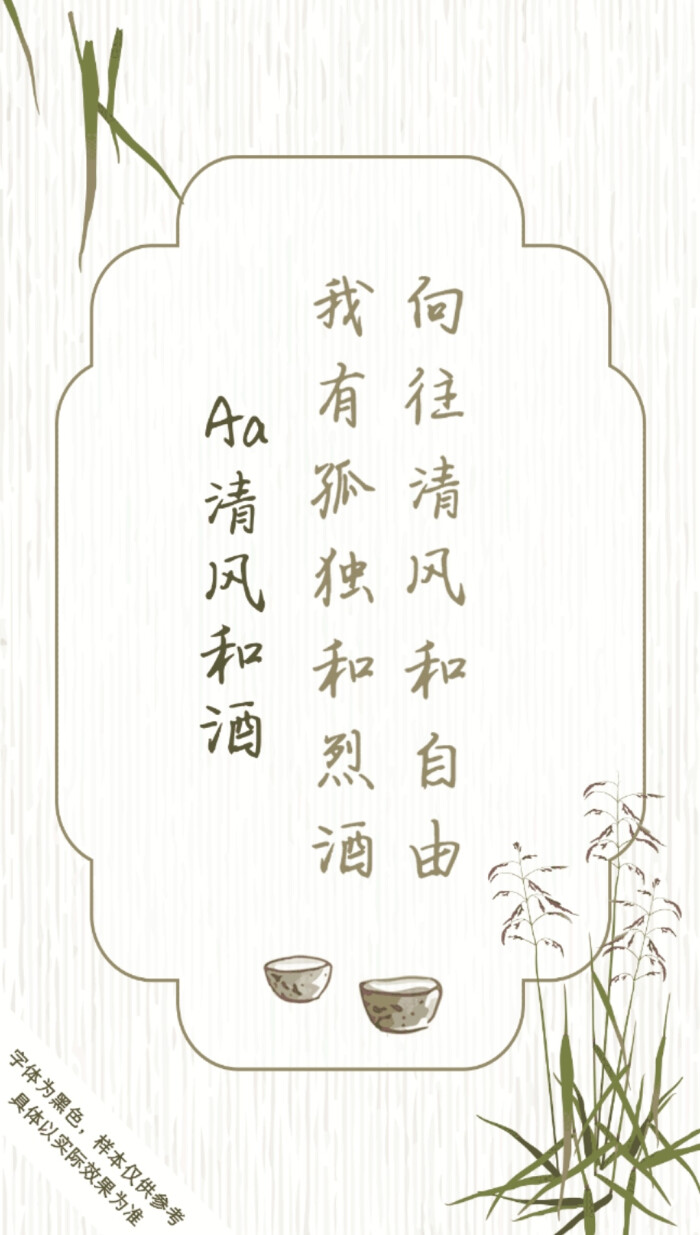 向往清风和自由
我有孤独和烈酒
Aa清风和酒
字体为黑色，样本仅供参考
具体以实际效果为准